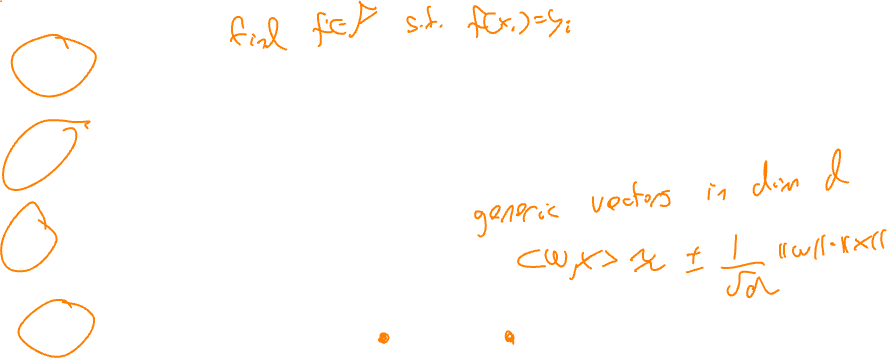 find f∈F s.t. f(x_i)=y_i
generic vectors in dim d
<w,x> ≈ ± 1/√d ||w||·||x||